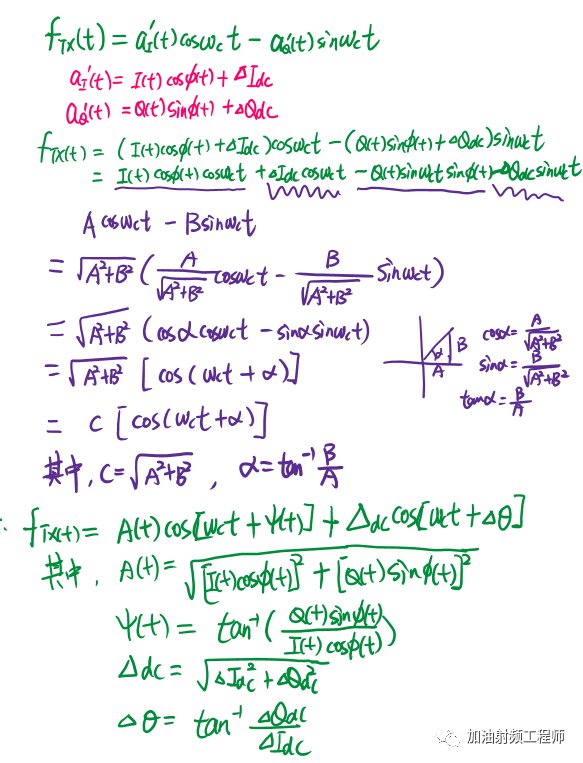 f_TX(t) = a_I'(t) cosω_ct − a_Q'(t) sinω_ct
a_I'(t) = I(t) cosφ(t) + ΔI_dc
a_Q'(t) = Q(t) sinφ(t) + ΔQ_dc
f_TX(t) = (I(t)cosφ(t) + ΔI_dc)cosω_ct − (Q(t)sinφ(t) + ΔQ_dc)sinω_ct
= I(t) cosφ(t) cosω_ct + ΔI_dc cosω_ct − Q(t)sinω_ct sinφ(t) − ΔQ_dc sinω_ct
A cosω_ct − B sinω_ct
= √(A²+B²) ( A/√(A²+B²) cosω_ct − B/√(A²+B²) sinω_ct)
= √(A²+B²) (cosα cosω_ct − sinα sinω_ct)
= √(A²+B²) [cos(ω_ct + α)]
= C [cos(ω_ct + α)]
其中, C = √(A²+B²) , α = tan⁻¹ B/A
α
B
A
cosα = A/√(A²+B²)
sinα = B/√(A²+B²)
tanα = B/A
∴ f_TX(t) = A(t) cos[ω_ct + Ψ(t)] + Δ_dc cos[ω_ct + Δθ]
其中, A(t) = √([I(t)cosφ(t)]² + [Q(t)sinφ(t)]²)
Ψ(t) = tan⁻¹( Q(t)sinφ(t) / I(t)cosφ(t) )
Δdc = √(ΔI_dc² + ΔQ_dc²)
Δθ = tan⁻¹ ΔQ_dc/ΔI_dc
加油射频工程师